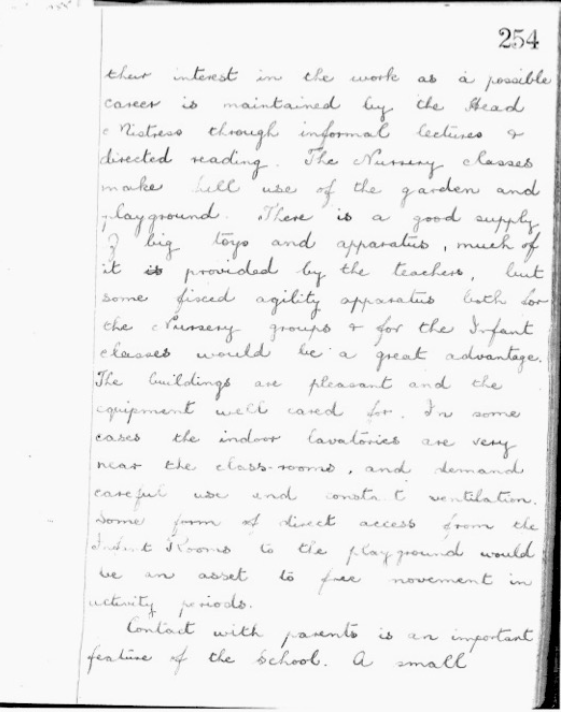 254
their interest in the work as a possible
career is maintained by the Head
Mistress through informal lectures &
directed reading. The Nursery classes
make full use of the garden and
playground. There is a good supply
of big toys and apparatus, much of
it is provided by the teachers, but
some fixed agility apparatus both for
the Nursery groups & for the Infant
classes would be a great advantage.
The buildings are pleasant and the
equipment well cared for. In some
cases the indoor lavatories are very
near the class-rooms, and demand
careful use and constant ventilation.
Some form of direct access from the
Infant Rooms to the playground would
be an asset to free movement in
activity periods.
Contact with parents is an important
feature of the School. A small